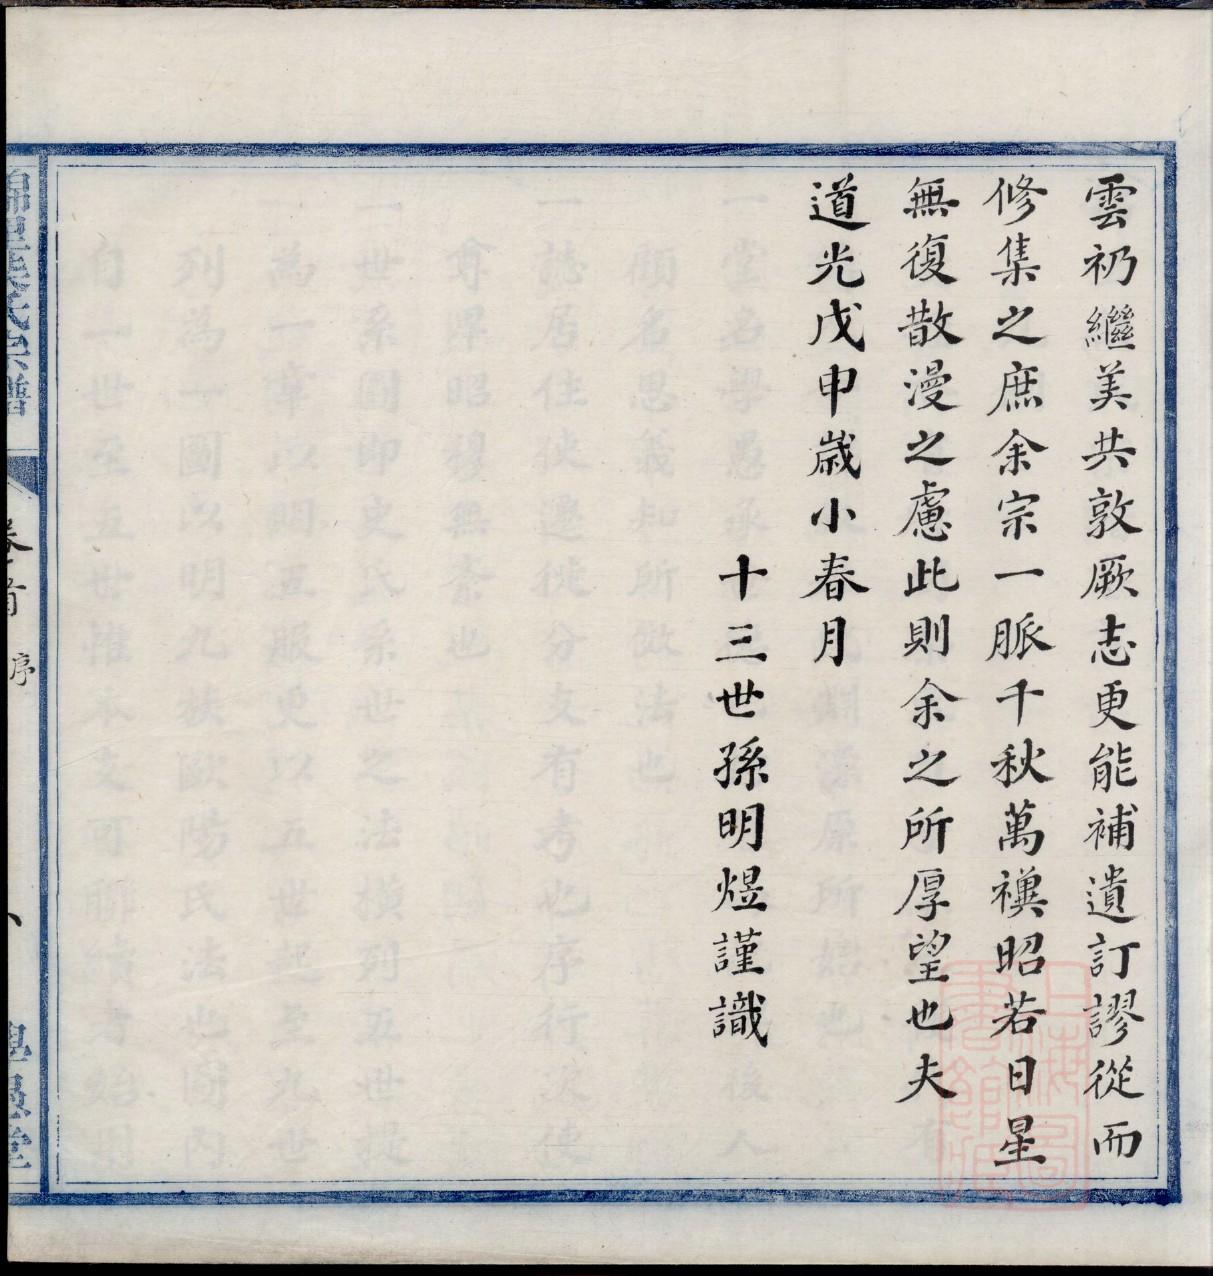 雲礽繼美共敦厥志更能補遺訂謬從而
修集之庶余宗一脈千秋萬禩昭若日星
無復散漫之慮此則余之所厚望也夫
道光戊申歲小春月
十三世孫明煜謹識
氏宗譜
卷首
序
學愚堂
上海圖書館藏